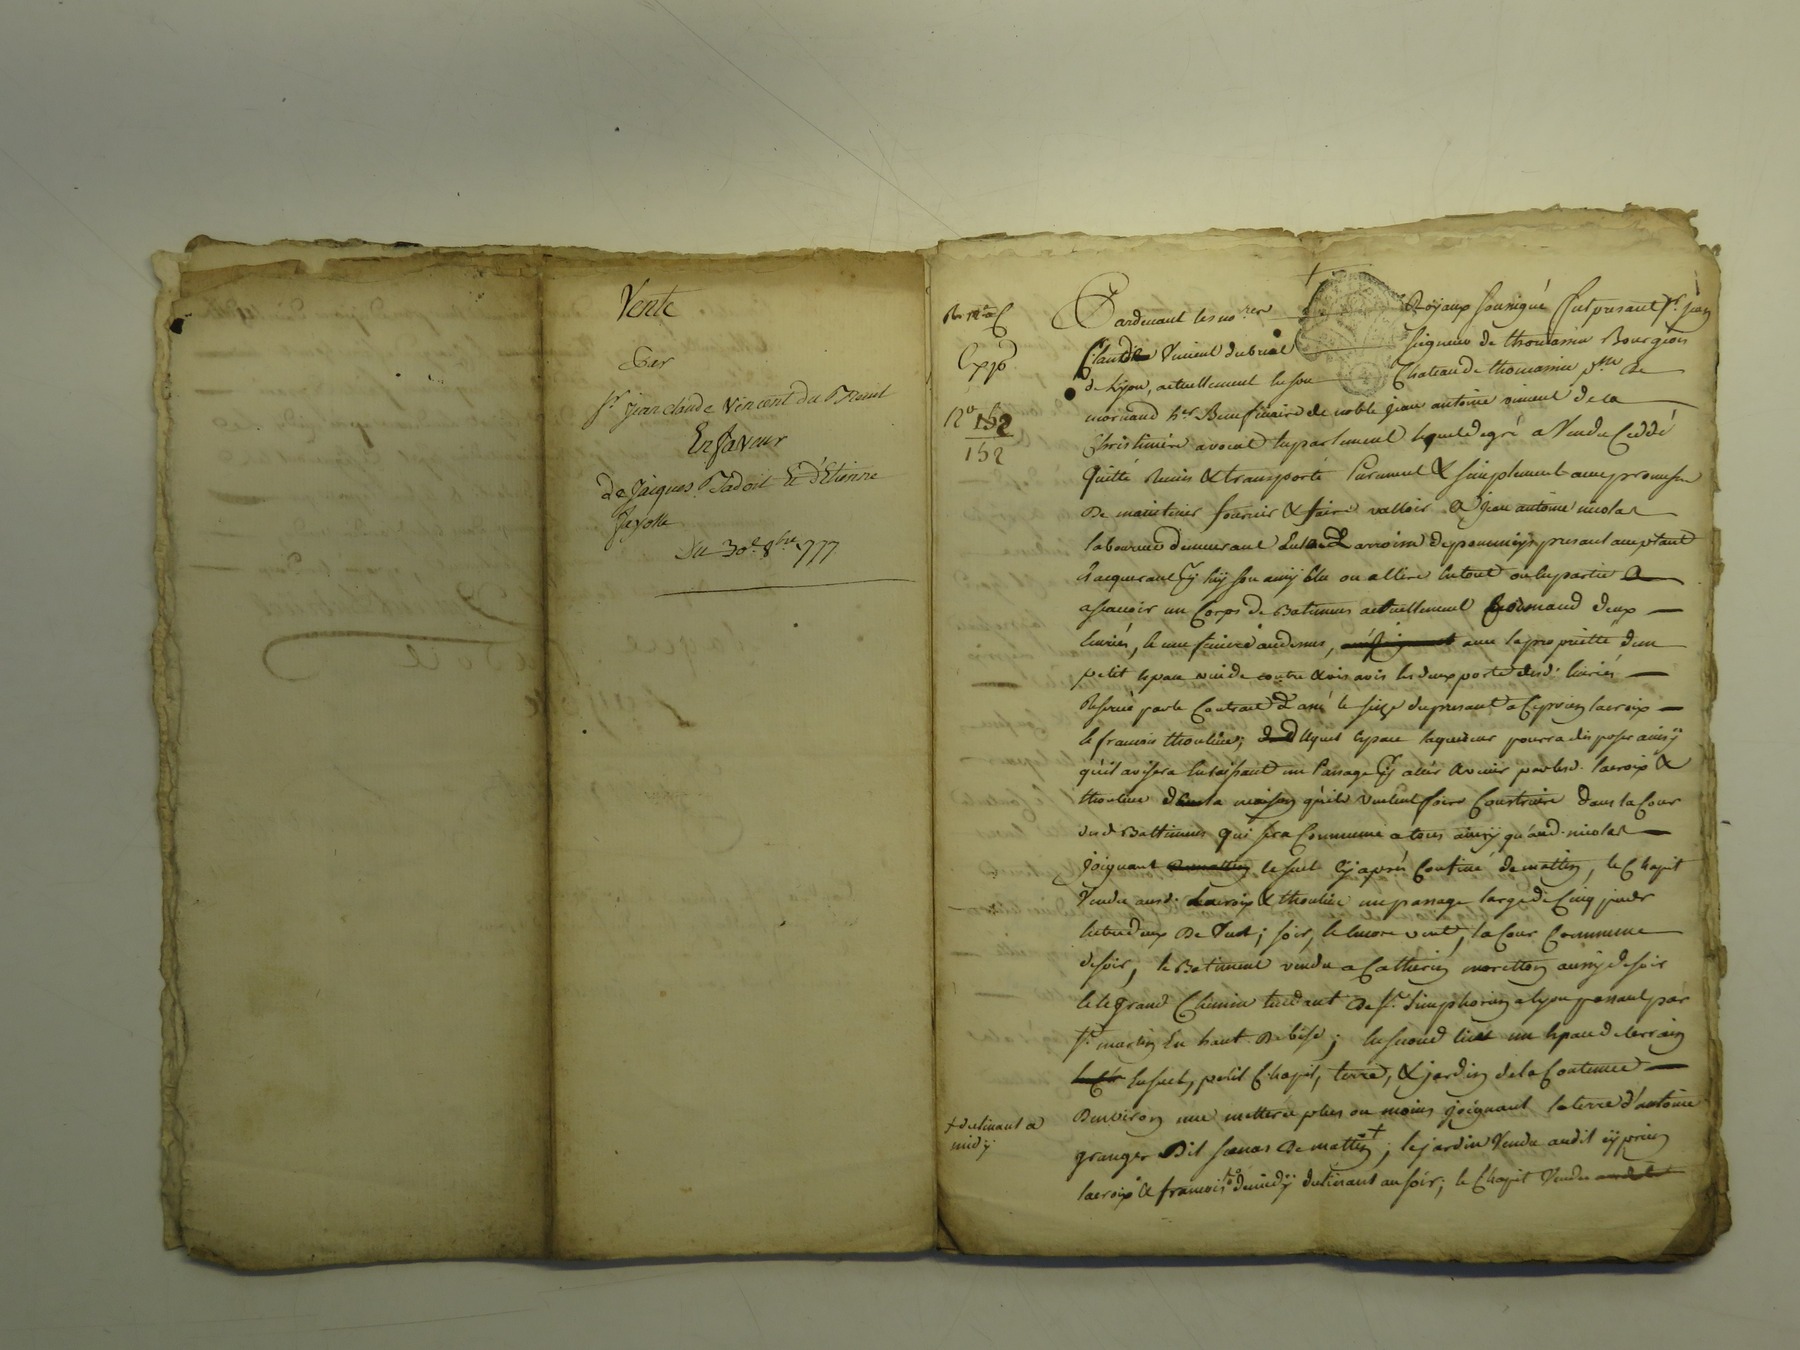 Vente
Par
Sr jean claude Vincent du Breuil
En faveur
De jacques Tadoit Et d'Etienne
fayolle
Du 30e 8bre 1777
Expé
No 152
152
Pardevant les no.res Royaux soussigné fut presant Sr. jean
Claude Vincent dubreal seigneur de thomassin Bourgeois
de Lyon, actuellement en son Chateau de thomassin psse de
mornand her Beneficiaire de noble jean antoine vincent de la
Christinière avocat En parlement lequel de gré a Vendu Ceddé
Quitté Remis & transporté Purement & simplement avec promesse
De maintenir fournir & faire valloir A jean antoine nicolas
laboureur demeurant En la parroisse de pommeys presant acceptant
& acquerant pr luy son amy Elu ou a Elire En tout ou En partie
a scavoir un Corps de Batiments actuellement formand deux
avec la propriette d'un
petit Espace vuide contre & vis avis les deux porte desd.
Reservé par le Contrat passé le seize du presant a Cyprien lacroix
& francois thouliere; duquel Espace lacquereur pourra disposer ainsy
qu'il avisera En laissant un Passage pr aller & venir par lesd. lacroix &
thouliere dans la maison qu'ils veulent faire Construire dans la Cour
desd. Battiments qui sera Commune a tous ainsy qu'aud. nicolas
joignant le suel Cy après Confiné de mattin, le Chapit
Vendu ausd. Lacroix & thouliere un passage large de Cinq pieds
Entre deux De vent; soir, & Encore vent, la Cour Commune
de soir, le Batiment vendu a Catherin moretton aussy de soir
& le grand Chemin tendant de St. Simphorien a Lyon passant par
St. martin En haut De bise; En second lieu un Espace de terrain
En suel, petit Chapit, terre, & jardin de la Contenue
D'environ une metterée plus ou moins joignant la terre d'antoine
granger Dit De mattin +; le jardin Vendu audit cyprien
lacroix & francois de midy declinant au soir; le Chapit Vendu
+ declinant a
midy